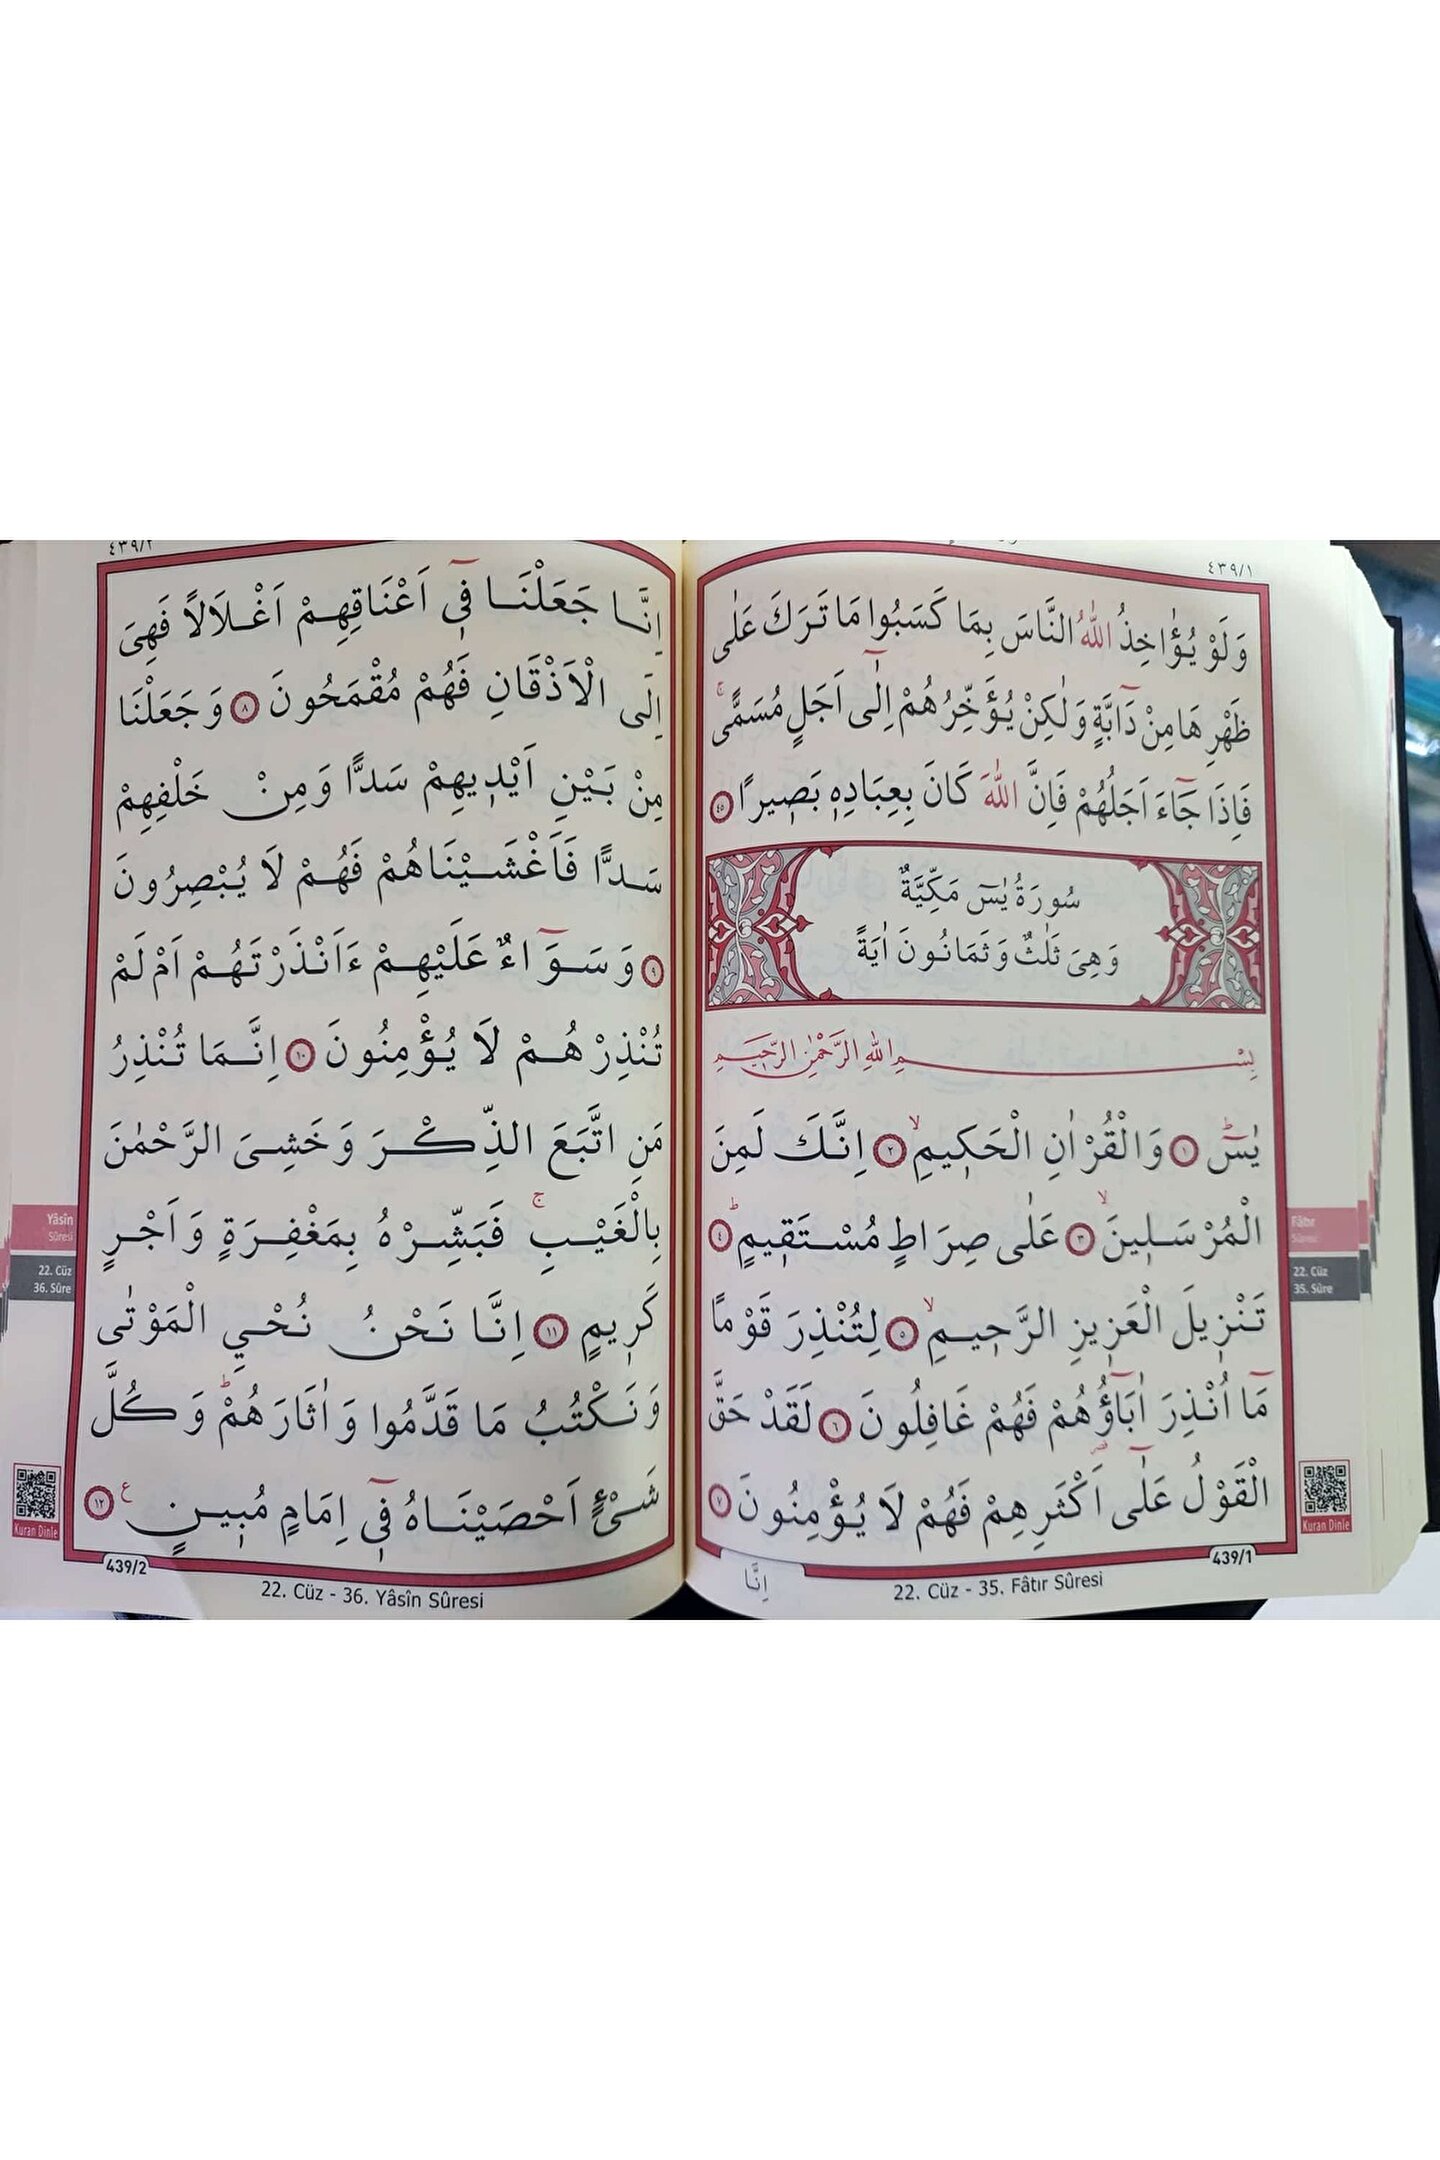 ٤٣٩/١
وَلَوْ يُؤٰاخِذُ اللّٰهُ النَّاسَ بِمَا كَسَبُوا مَا تَرَكَ عَلٰى
ظَهْرِهَا مِنْ دَٓابَّةٍ وَلٰكِنْ يُؤَخِّرُهُمْ اِلٰٓى اَجَلٍ مُسَمًّىۚ
فَاِذَا جَٓاءَ اَجَلُهُمْ فَاِنَّ اللّٰهَ كَانَ بِعِبَادِه۪ بَص۪يرًا ﴿٤٥﴾
سُورَةُ يٰسٓ مَكِّيَّةٌ
وَهِيَ ثَلٰثٌ وَثَمَانُونَ اٰيَةً
بِسْمِ اللّٰهِ الرَّحْمٰنِ الرَّح۪يمِ
يٰسٓۜ ﴿١﴾ وَالْقُرْاٰنِ الْحَك۪يمِۙ ﴿٢﴾ اِنَّكَ لَمِنَ
الْمُرْسَل۪ينَۙ ﴿٣﴾ عَلٰى صِرَاطٍ مُسْتَق۪يمٍۜ ﴿٤﴾
تَنْز۪يلَ الْعَز۪يزِ الرَّح۪يمِۙ ﴿٥﴾ لِتُنْذِرَ قَوْمًا
مَٓا اُنْذِرَ اٰبَٓاؤُ۬هُمْ فَهُمْ غَافِلُونَ ﴿٦﴾ لَقَدْ حَقَّ
الْقَوْلُ عَلٰٓى اَكْثَرِهِمْ فَهُمْ لَا يُؤْمِنُونَ ﴿٧﴾
439/1
اِنَّا
22. Cüz - 35. Fâtır Sûresi
Fâtır
Sûresi
22. Cüz
35. Sûre
Kuran Dinle
٤٣٩/٢
اِنَّا جَعَلْنَا ف۪ٓي اَعْنَاقِهِمْ اَغْلَالًا فَهِيَ
اِلَى الْاَذْقَانِ فَهُمْ مُقْمَحُونَ ﴿٨﴾ وَجَعَلْنَا
مِنْ بَيْنِ اَيْد۪يهِمْ سَدًّا وَمِنْ خَلْفِهِمْ
سَدًّا فَاَغْشَيْنَاهُمْ فَهُمْ لَا يُبْصِرُونَ
﴿٩﴾ وَسَوَٓاءٌ عَلَيْهِمْ ءَاَنْذَرْتَهُمْ اَمْ لَمْ
تُنْذِرْهُمْ لَا يُؤْمِنُونَ ﴿١٠﴾ اِنَّمَا تُنْذِرُ
مَنِ اتَّبَعَ الذِّكْرَ وَخَشِيَ الرَّحْمٰنَ
بِالْغَيْبِۚ فَبَشِّرْهُ بِمَغْفِرَةٍ وَاَجْرٍ
كَر۪يمٍ ﴿١١﴾ اِنَّا نَحْنُ نُحْيِ الْمَوْتٰى
وَنَكْتُبُ مَا قَدَّمُوا وَاٰثَارَهُمْۜ وَكُلَّ
شَيْءٍ اَحْصَيْنَاهُ ف۪ٓي اِمَامٍ مُب۪ينٍ ع ﴿١٢﴾
439/2
22. Cüz - 36. Yâsîn Sûresi
Yâsîn
Sûresi
22. Cüz
36. Sûre
Kuran Dinle